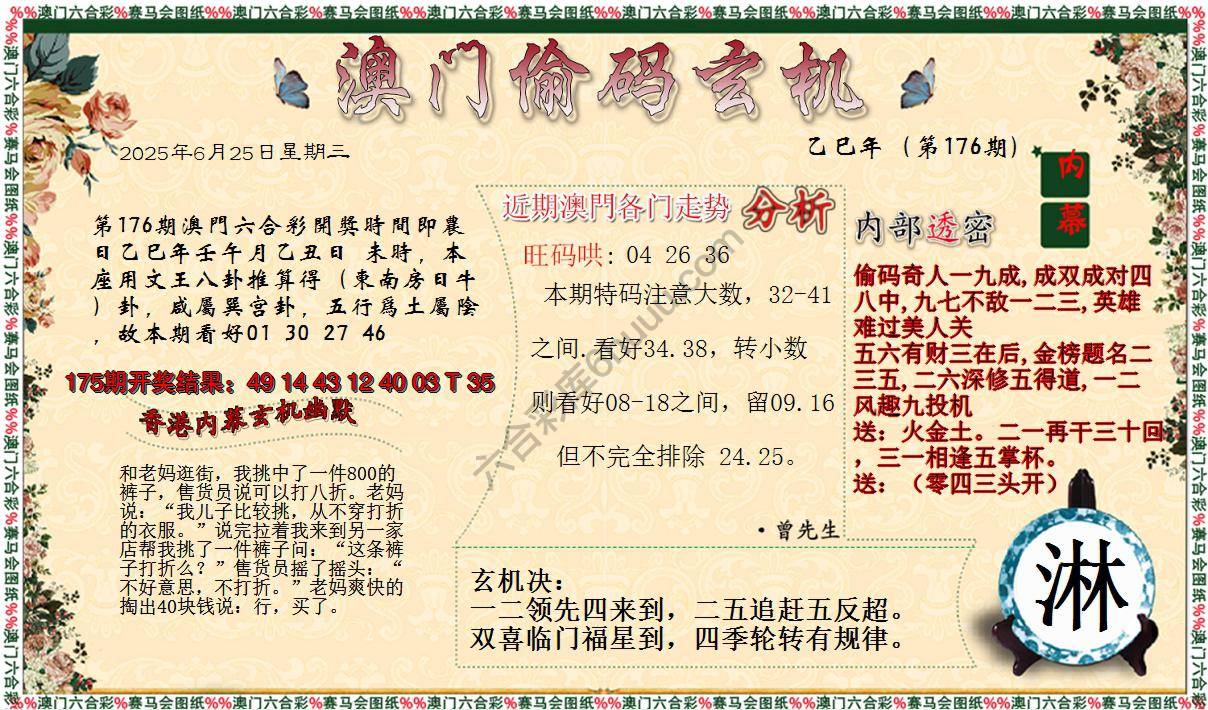 %%澳门六合彩%赛马会图纸%%澳门六合彩%赛马会图纸%%澳门六合彩%赛马会图纸%%澳门六合彩%赛马会图纸%%澳门六合彩%赛马会图纸%%澳门六合彩%赛马会图纸%%
澳门偷码玄机
2025年6月25日星期三
乙巳年（第176期）
内
幕
第176期澳門六合彩開獎時間即農
日乙巳年壬午月乙丑日 未時，本
座用文王八卦推算得（東南房日牛
）卦，咸屬巽宫卦，五行爲土屬陰
，故本期看好01 30 27 46
175期开奖结果：49 14 43 12 40 03 T 35
香港内幕玄机幽默
和老妈逛街，我挑中了一件800的
裤子，售货员说可以打八折。老妈
说：“我儿子比较挑，从不穿打折
的衣服。”说完拉着我来到另一家
店帮我挑了一件裤子问：“这条裤
子打折么？”售货员摇了摇头：“
不好意思，不打折。”老妈爽快的
掏出40块钱说：行，买了。
近期澳門各门走势 分析
旺码哄: 04 26 36
本期特码注意大数，32-41
之间.看好34.38，转小数
则看好08-18之间，留09.16
但不完全排除 24.25。
·曾先生
内部透密
偷码奇人一九成,成双成对四
八中,九七不敌一二三,英雄
难过美人关
五六有财三在后,金榜题名二
三五,二六深修五得道,一二
风趣九投机
送：火金土。二一再干三十回
，三一相逢五掌杯。
送：（零四三头开）
玄机决：
一二领先四来到，二五追赶五反超。
双喜临门福星到，四季轮转有规律。
淋